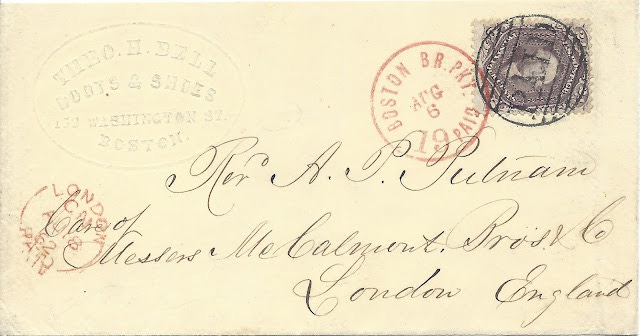 THEO. H. BELL
BOOTS & SHOES
WASHINGTON ST.
BOSTON.
BOSTON BR. PKT.
AUG
6
19 PAID
PAID
Revd A. P. Putnam
Care of
Messers McCalmont. Bros. & Co
London England
LONDON
PAID